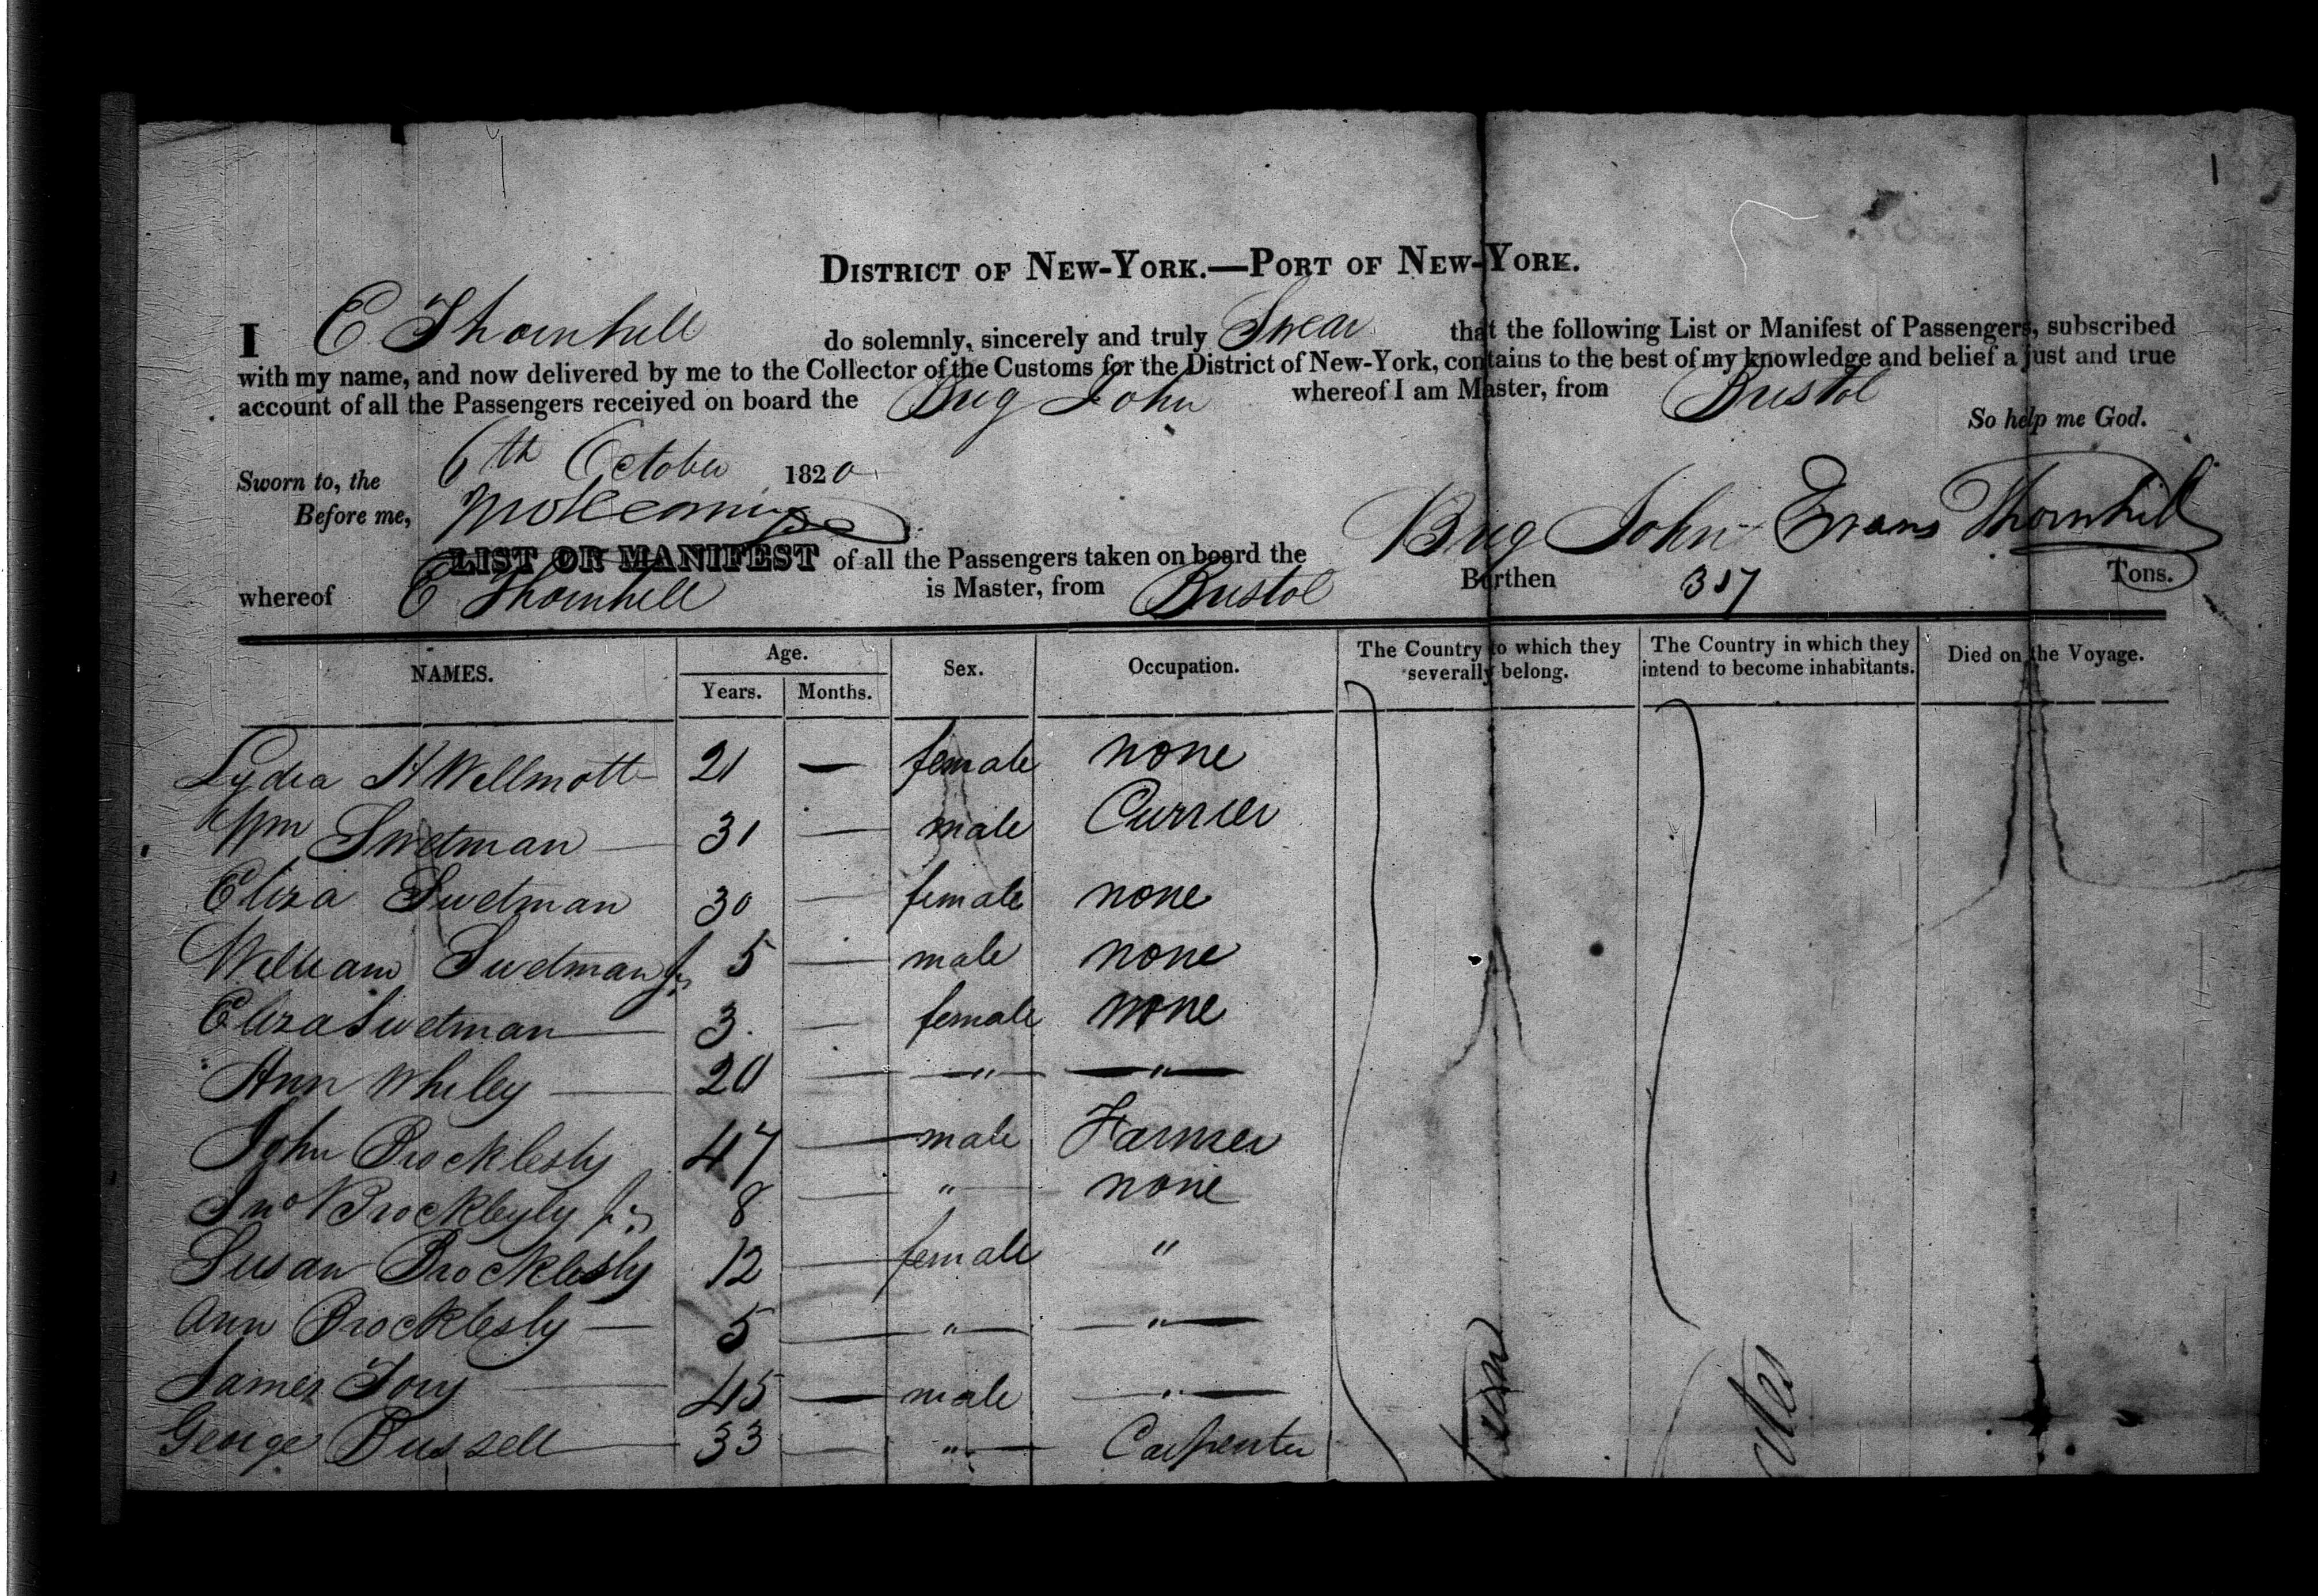 DISTRICT OF NEW-YORK.—PORT OF NEW-YORK.
I E Thornhill do solemnly, sincerely and truly Swear that the following List or Manifest of Passengers, subscribed
with my name, and now delivered by me to the Collector of the Customs for the District of New-York, contains to the best of my knowledge and belief a just and true
account of all the Passengers received on board the Brig John whereof I am Master, from Bristol
So help me God.
Sworn to, the 6th October 1820
Before me,
Evans Thornhill
LIST OR MANIFEST of all the Passengers taken on board the Brig John
whereof E Thornhill is Master, from Bristol Burthen 357 Tons.
NAMES. Age. Years. Months. Sex. Occupation. The Country to which they severally belong. The Country in which they intend to become inhabitants. Died on the Voyage.
Lydia H Wellmott 21 — female none
Wm Swetman — 31 — male Currier
Eliza Swetman 30 — female none
William Swetman Jr 5 — male none
Eliza Swetman — 3. — female none
Ann Whiley — 20 — " "
John Brocklesby 47 — male Farmer
Jno Brocklesby Jr 8 — " none
Susan Brocklesby 12 — female "
Ann Brocklesby — 5 — " "
James Tory — 45 — male "
George Bussell — 33 — " Carpenter